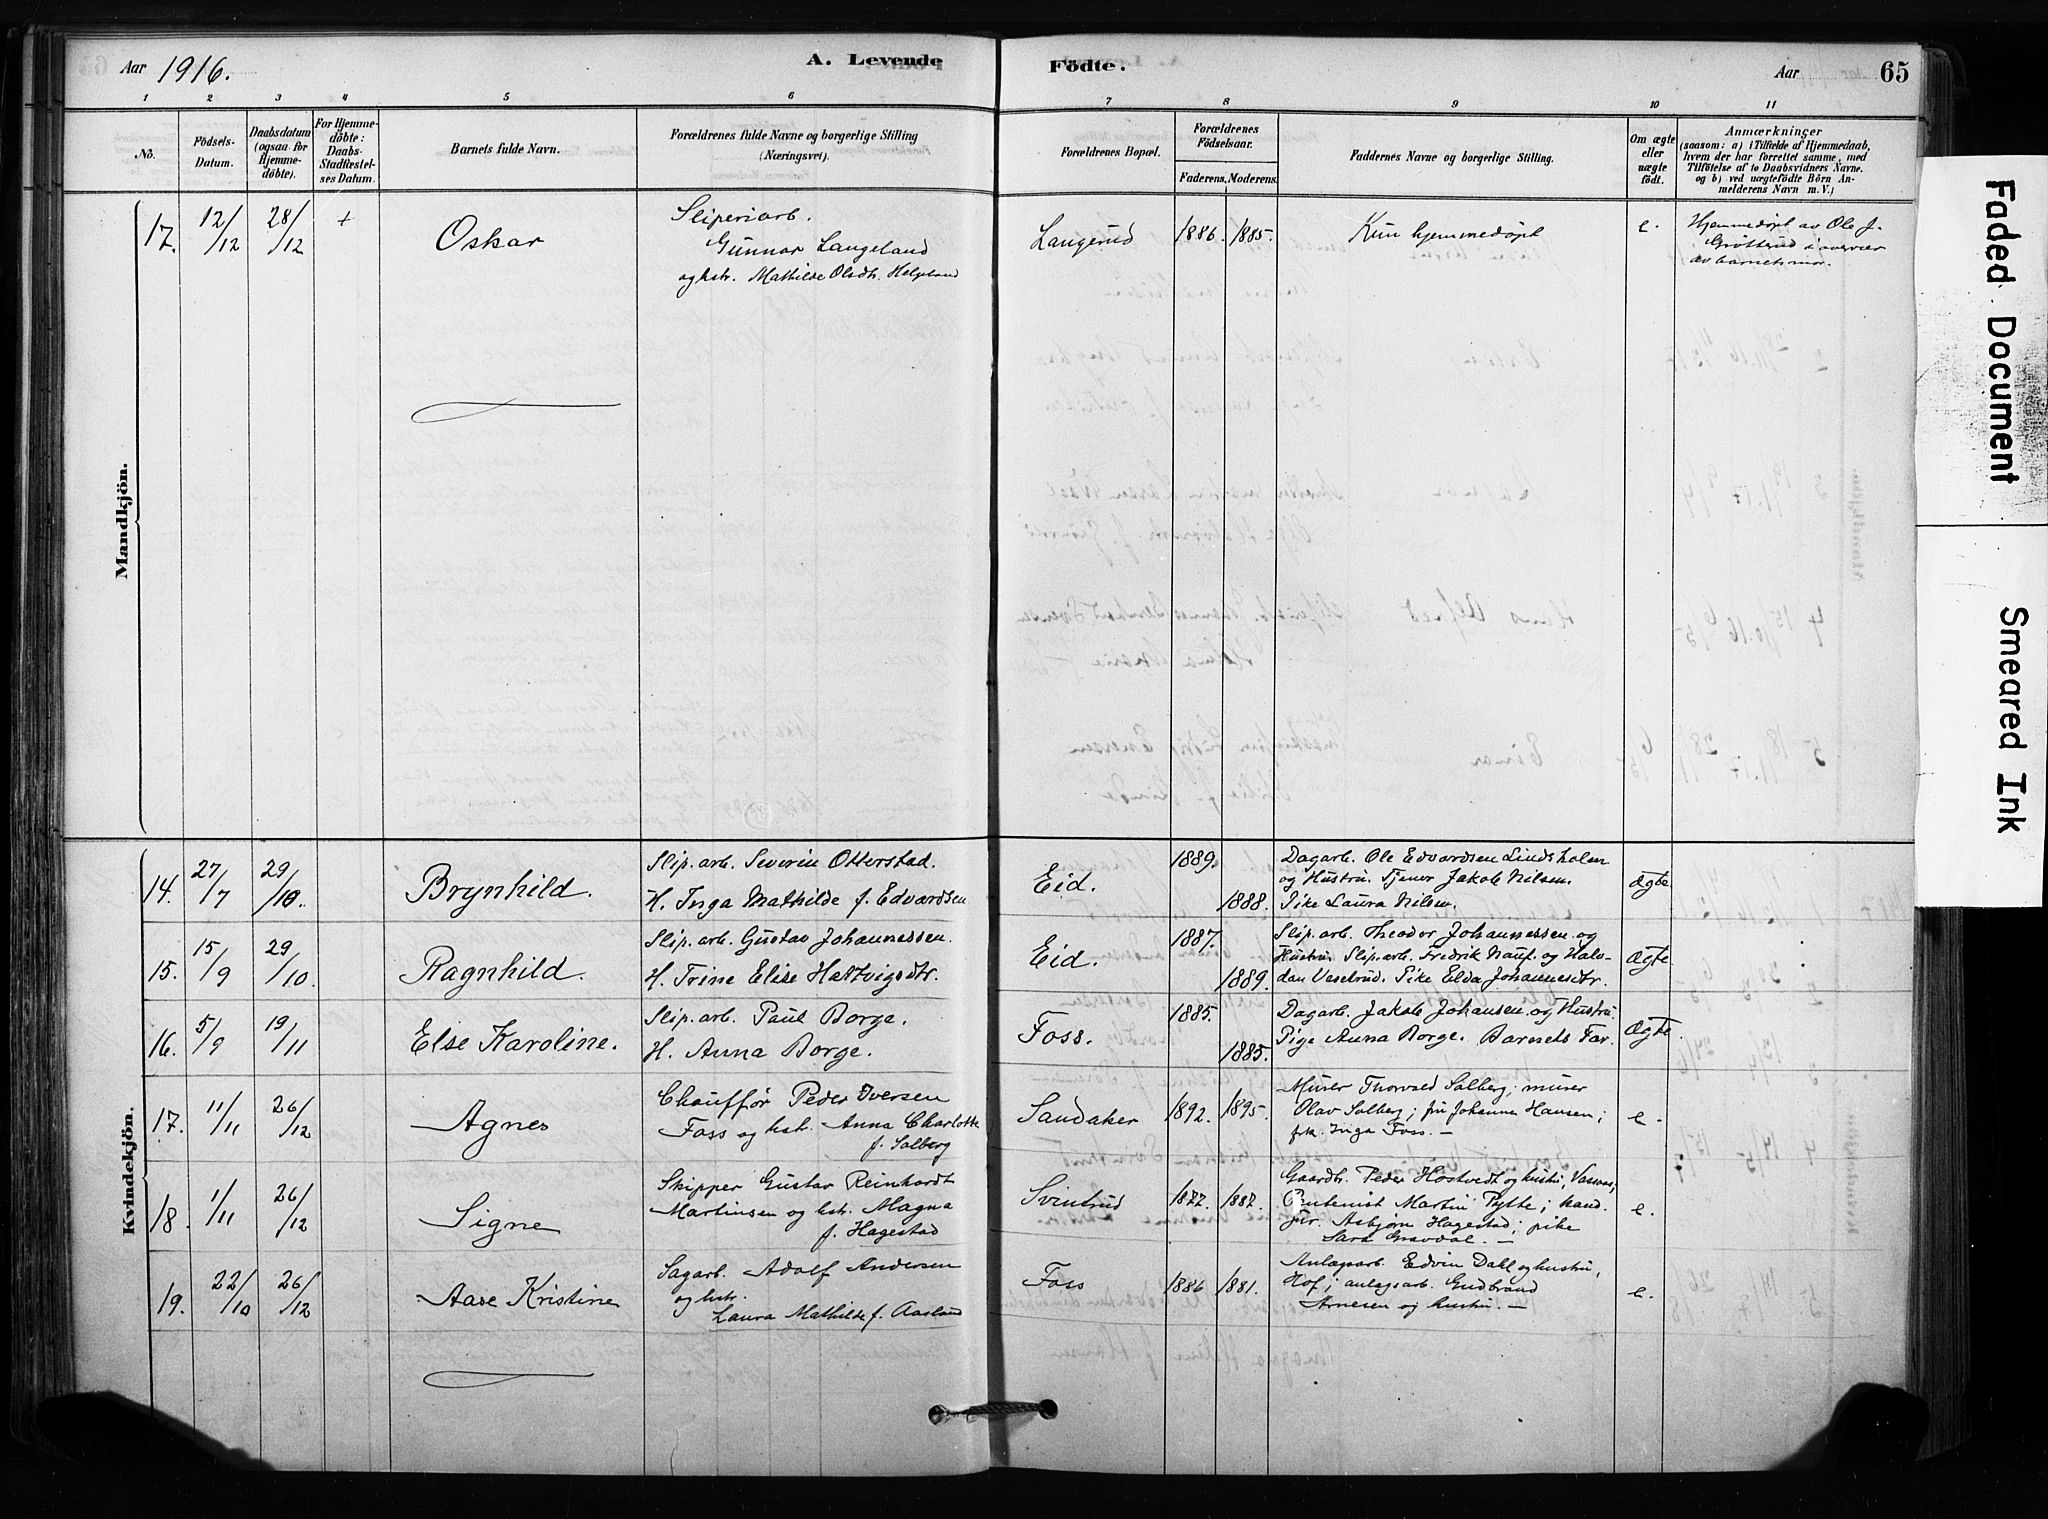 Aar 1916.
A. Levende
Födte.
Aar
65
1 2 3 4 5 6 7 8 9 10 11
No.
Födsels-Datum.
Daabsdatum (ogsaa for Hjemme-döbte).
For Hjemme-döbte: Daabs-Stadfæstel-ses Datum.
Barnets fulde Navn.
Forældrenes fulde Navne og borgerlige Stilling (Næringsvei).
Forældrenes Bopæl.
Forældrenes Födselsaar.
Faderens. Moderens.
Faddernes Navne og borgerlige Stilling.
Om ægte eller uægte födt.
Anmærkninger
(saasom: a) i Tilfælde af Hjemmedaab,
hvem der har forrettet samme, med
Tilföielse af to Daabsvidners Navne.
og b) ved uægtefödte Börn An-
melderens Navn m. V.)
Mandkjön.
17. 12/12 28/12 + Oskar
Sliperiarb.
Gunnar Langeland
og hstr. Mathilde Olsdtr. Helgeland
Langerud 1886. 1885.
Kun hjemmedøpt
e.
Hjemmedøpt av Ole J.
Grøtterud i overvær
av barnets mor.
Kvindekjön.
14. 27/7 29/10. Brynhild.
Slip.arb. Severin Otterstad.
H. Inga Mathilde f. Edvardsen
Eid. 1889. 1888.
Dagarb. Ole Edvardsen Lindsholm
og Hustru. Tjener Jakob Nilsen.
Pike Laura Nilsen.
Ægte
15. 15/9 29/10. Ragnhild.
Slip.arb. Gustav Johannessen.
H. Trine Elise Hartvigsdtr.
Eid. 1887. 1889.
Slip.arb. Theodor Johannessen og
Hustru Slip.arb. Fredrik Nauf. og Halv-
dan Veselrud. Pike Elda Johannesdtr.
Ægte
16. 5/9 19/11 Else Karoline.
Slip.arb. Paul Borge.
H. Anna Borge.
Foss. 1885. 1885.
Dagarb. Jakob Johansen og Hustru.
Pige Anna Borge. Barnets Far.
Ægte.
17. 11/11 26/12 Agnes
Chauffør Peder Iversen
Foss og hstr. Anna Charlotte
f. Solberg
Sandaker 1892. 1895.
Murer Thorvald Solberg; murer
Olav Solberg; fru Johanne Hansen;
frk. Inga Foss. —
e.
18. 1/11 26/12 Signe
Skipper Gustav Reinhardt
Martinsen og hstr. Magna
f. Hagestad
Svinrud 1877. 1887.
Gaardbr. Peder Hostvedt og hustru, Vassaas;
Martin Bytte; kand.
jur. Asbjørn Hagestad; pike
Sara Gravdal. —
e.
19. 22/10 26/12 Aase Kristine
Sagarb. Adolf Andersen
og hstr.
Laura Mathilde f. Aasland
Foss 1886 1881.
Anlægsarb. Edvin Dahl og hustru,
Hof; anlægsarb. Gudbrand
Arnesen og hustru. —
e.
Faded Document
Smeared Ink